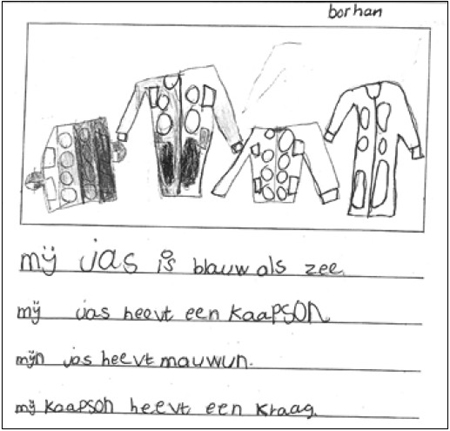 borhan
mij jas is blauw als zee
mij jas heevt een kaapson
mijn jas heevt mauwun.
mij kaapson heevt een kraag.